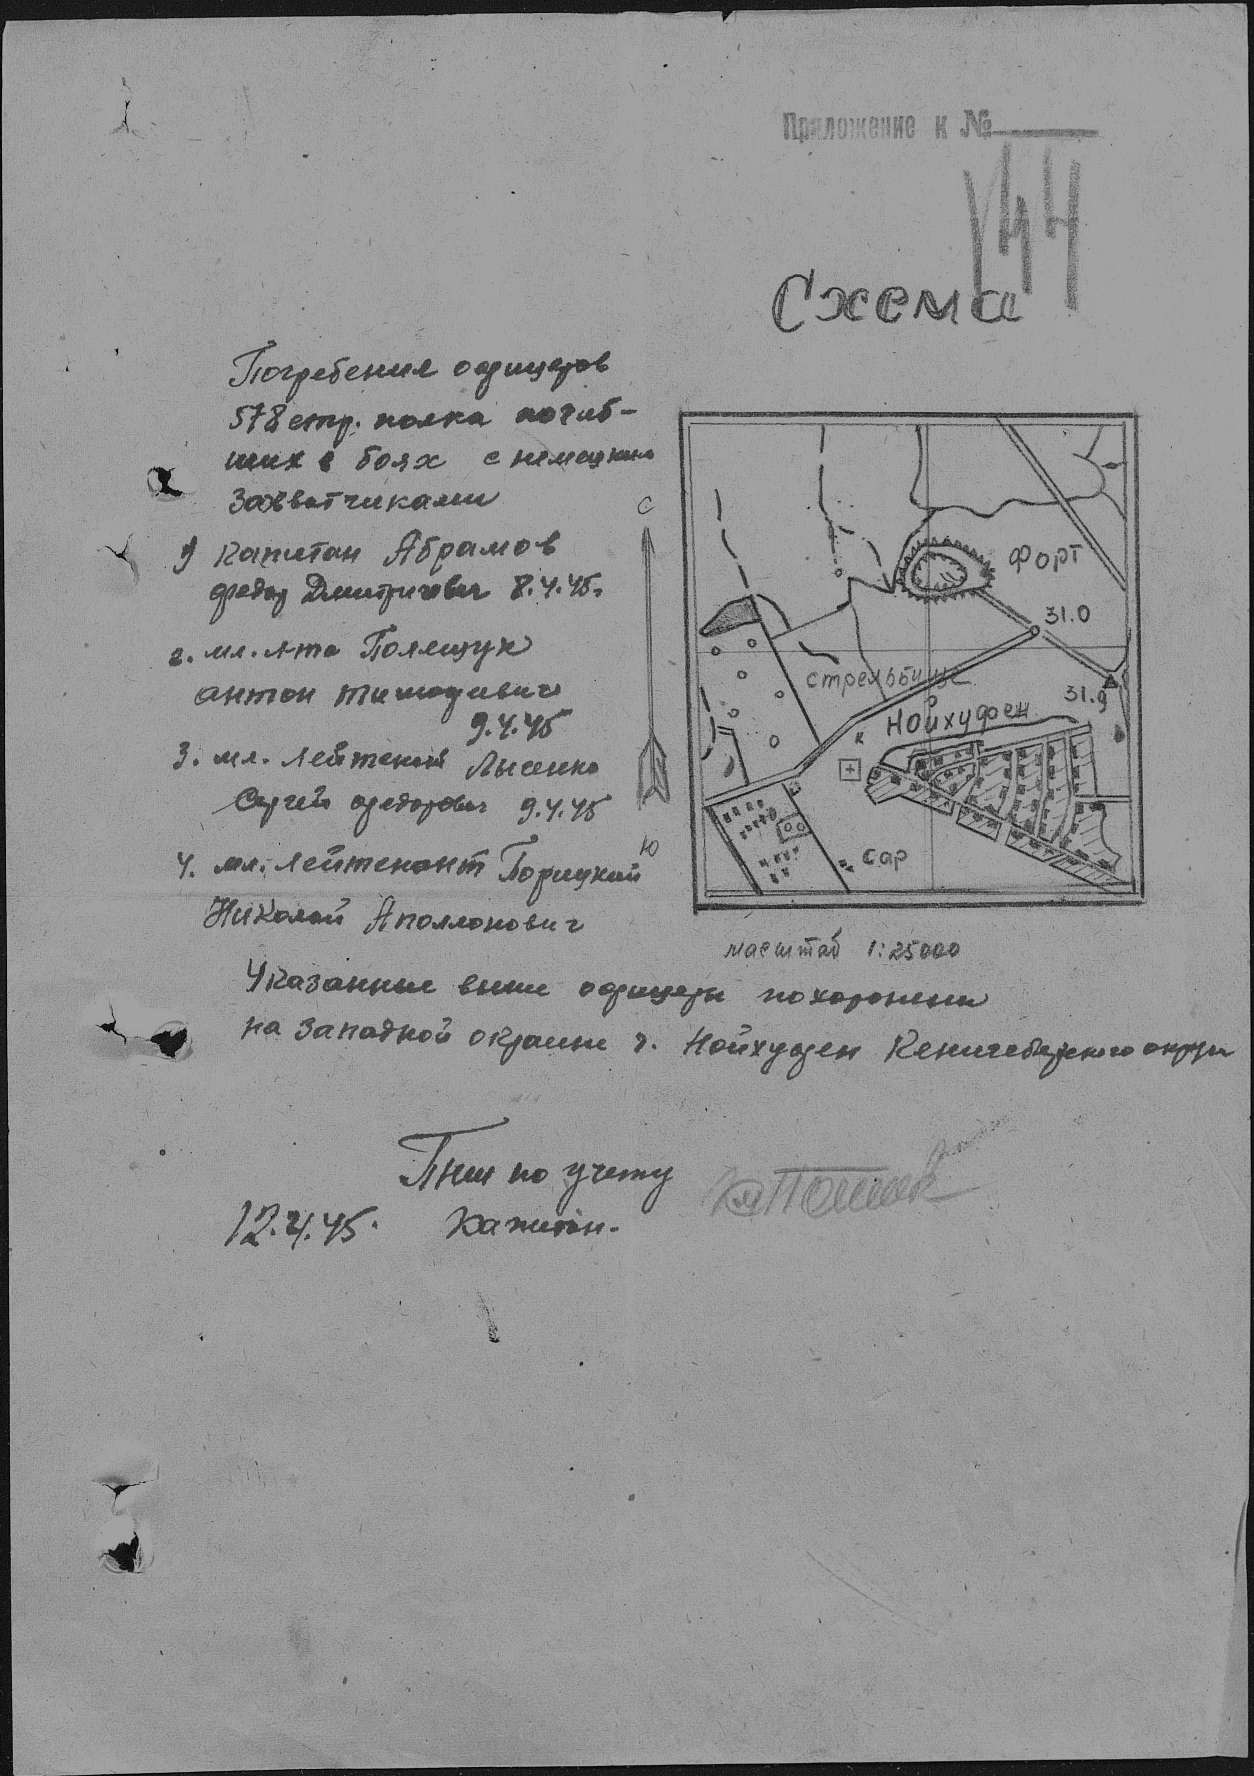 Приложение к №
Схема
Погребения офицеров
578 стр. полка погиб-
ших в боях с немецкими
захватчиками
1) Капитан Абрамов
Федор Дмитриевич 8.4.45.
2. мл. л-та Полещук
Антон Тимофеевич
9.4.45
3. мл. лейтенант Лысенко
Сергей Федорович 9.4.45
4. мл. лейтенант Борицкий
Николай Аполлонович
С
Ю
Форт
31.0
стрельбище
31.9
Нойхуфен
К
сар
масштаб 1:25000
Указанные выше офицеры похоронены
на западной окраине г. Нойхуфен Кенигсбергского округа
ПНШ по учету
12.4.45. Капитан.